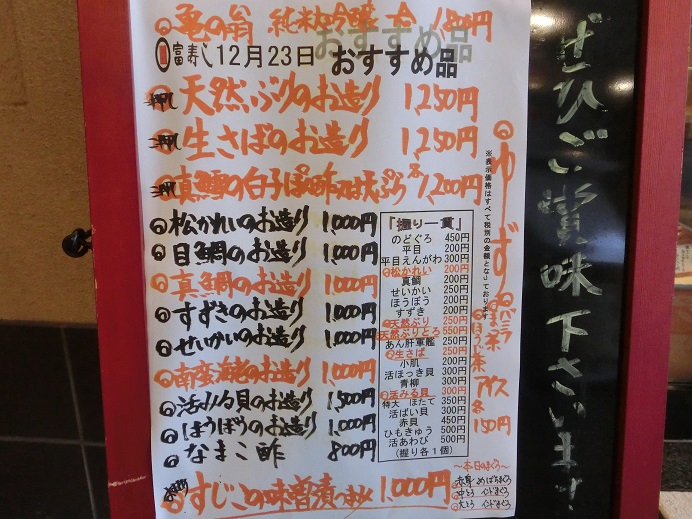 亀の翁 純米大吟醸 1,800円
富寿し 12月23日 おすすめ品
押し 天然ぶりのお造り 1,250円
押し 生さばのお造り 1,250円
押し 真鱈の白子ぽん酢又は天ぷら 各1,200円
松かれいのお造り 1,000円
目鯛のお造り 1,000円
真鯛のお造り 1,000円
すずきのお造り 1,000円
せいかいのお造り 1,000円
南蛮海老のお造り 1,000円
活みる貝のお造り 1,500円
ほうぼうのお造り 1,000円
なまこ酢 800円
すじこの味噌漬 1,000円
「握り一貫」
のどぐろ 450円
平目 200円
平目えんがわ 300円
松かれい 200円
真鯛 200円
せいかい 250円
ほうぼう 200円
すずき 200円
天然ぶり 250円
天然ぶりとろ 550円
あん肝軍艦 250円
生さば 250円
小肌 200円
活ほっき貝 300円
青柳 300円
活みる貝 300円
特大 ほたて 350円
活ばい貝 300円
赤貝 450円
ひもきゅう 500円
活あわび 500円
(握り各1個)
※表示価格はすべて税別の金額となっております。
ゆず
バニラ
まっ茶
ほうじ茶
アイス
各150円
～本日のまぐろ～
赤身 めばちまぐろ
中とろ インドまぐろ
大とろ インドまぐろ
ぜひご賞味下さいませ